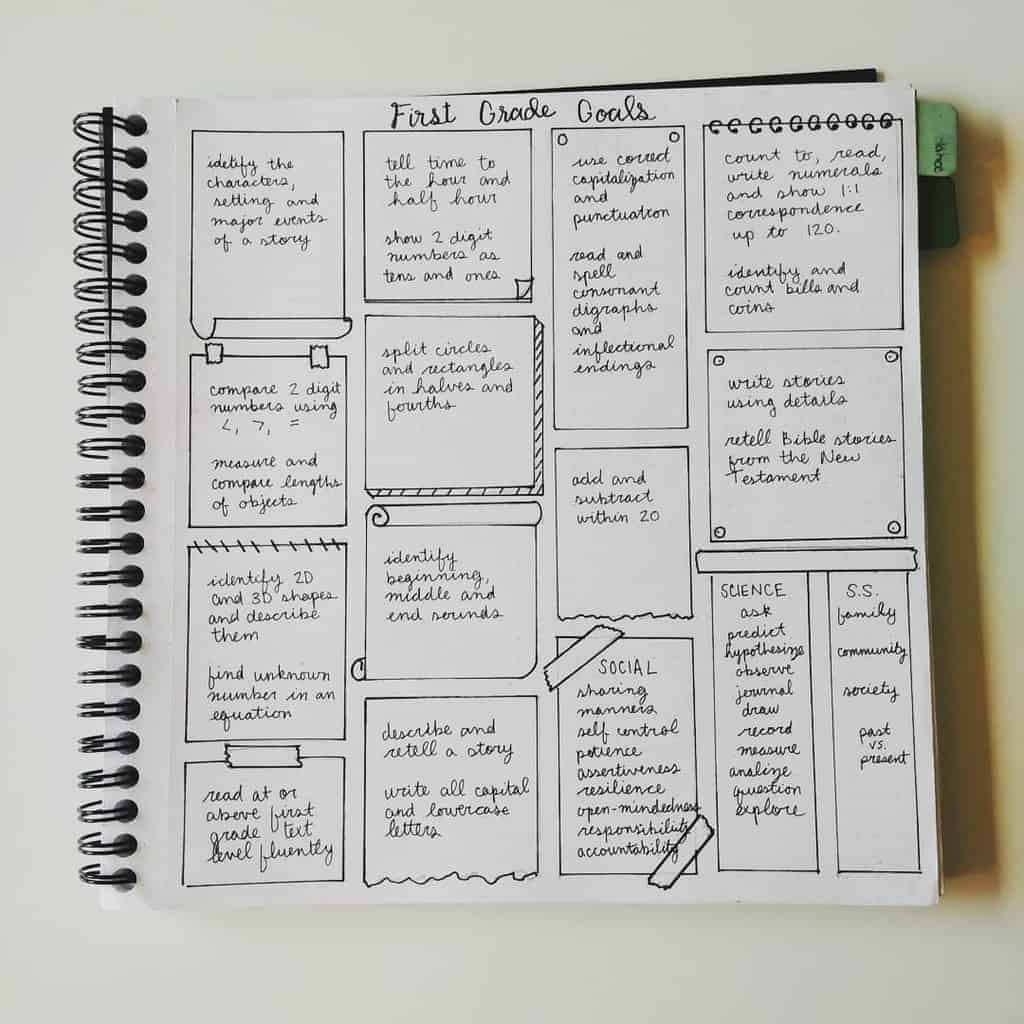 First Grade Goals
idetify the
characters,
setting and
major events
of a story
compare 2 digit
numbers using
<, >, =
measure and
compare lengths
of objects
identify 2D
and 3D shapes
and describe
them
find unknown
number in an
equation
read at or
above first
grade text
level fluently
tell time to
the hour and
half hour
show 2 digit
numbers as
tens and ones
split circles
and rectangles
in halves and
fourths
identify
beginning,
middle and
end sounds
describe and
retell a story
write all capital
and lowercase
letters
use correct
capitalization
and
punctuation
read and
spell
consonant
digraphs
and
inflectional
endings
add and
subtract
within 20
SOCIAL
sharing
manners
self control
patience
assertiveness
resilience
open-mindedness
responsibility
accountability
count to, read,
write numerals
and show 1:1
correspondence
up to 120.
identify and
count bills and
coins
write stories
using details
retell Bible stories
from the New
Testament
SCIENCE
ask
predict
hypothesize
observe
journal
draw
record
measure
analize
question
explore
S.S.
family
community
society
past
vs.
present